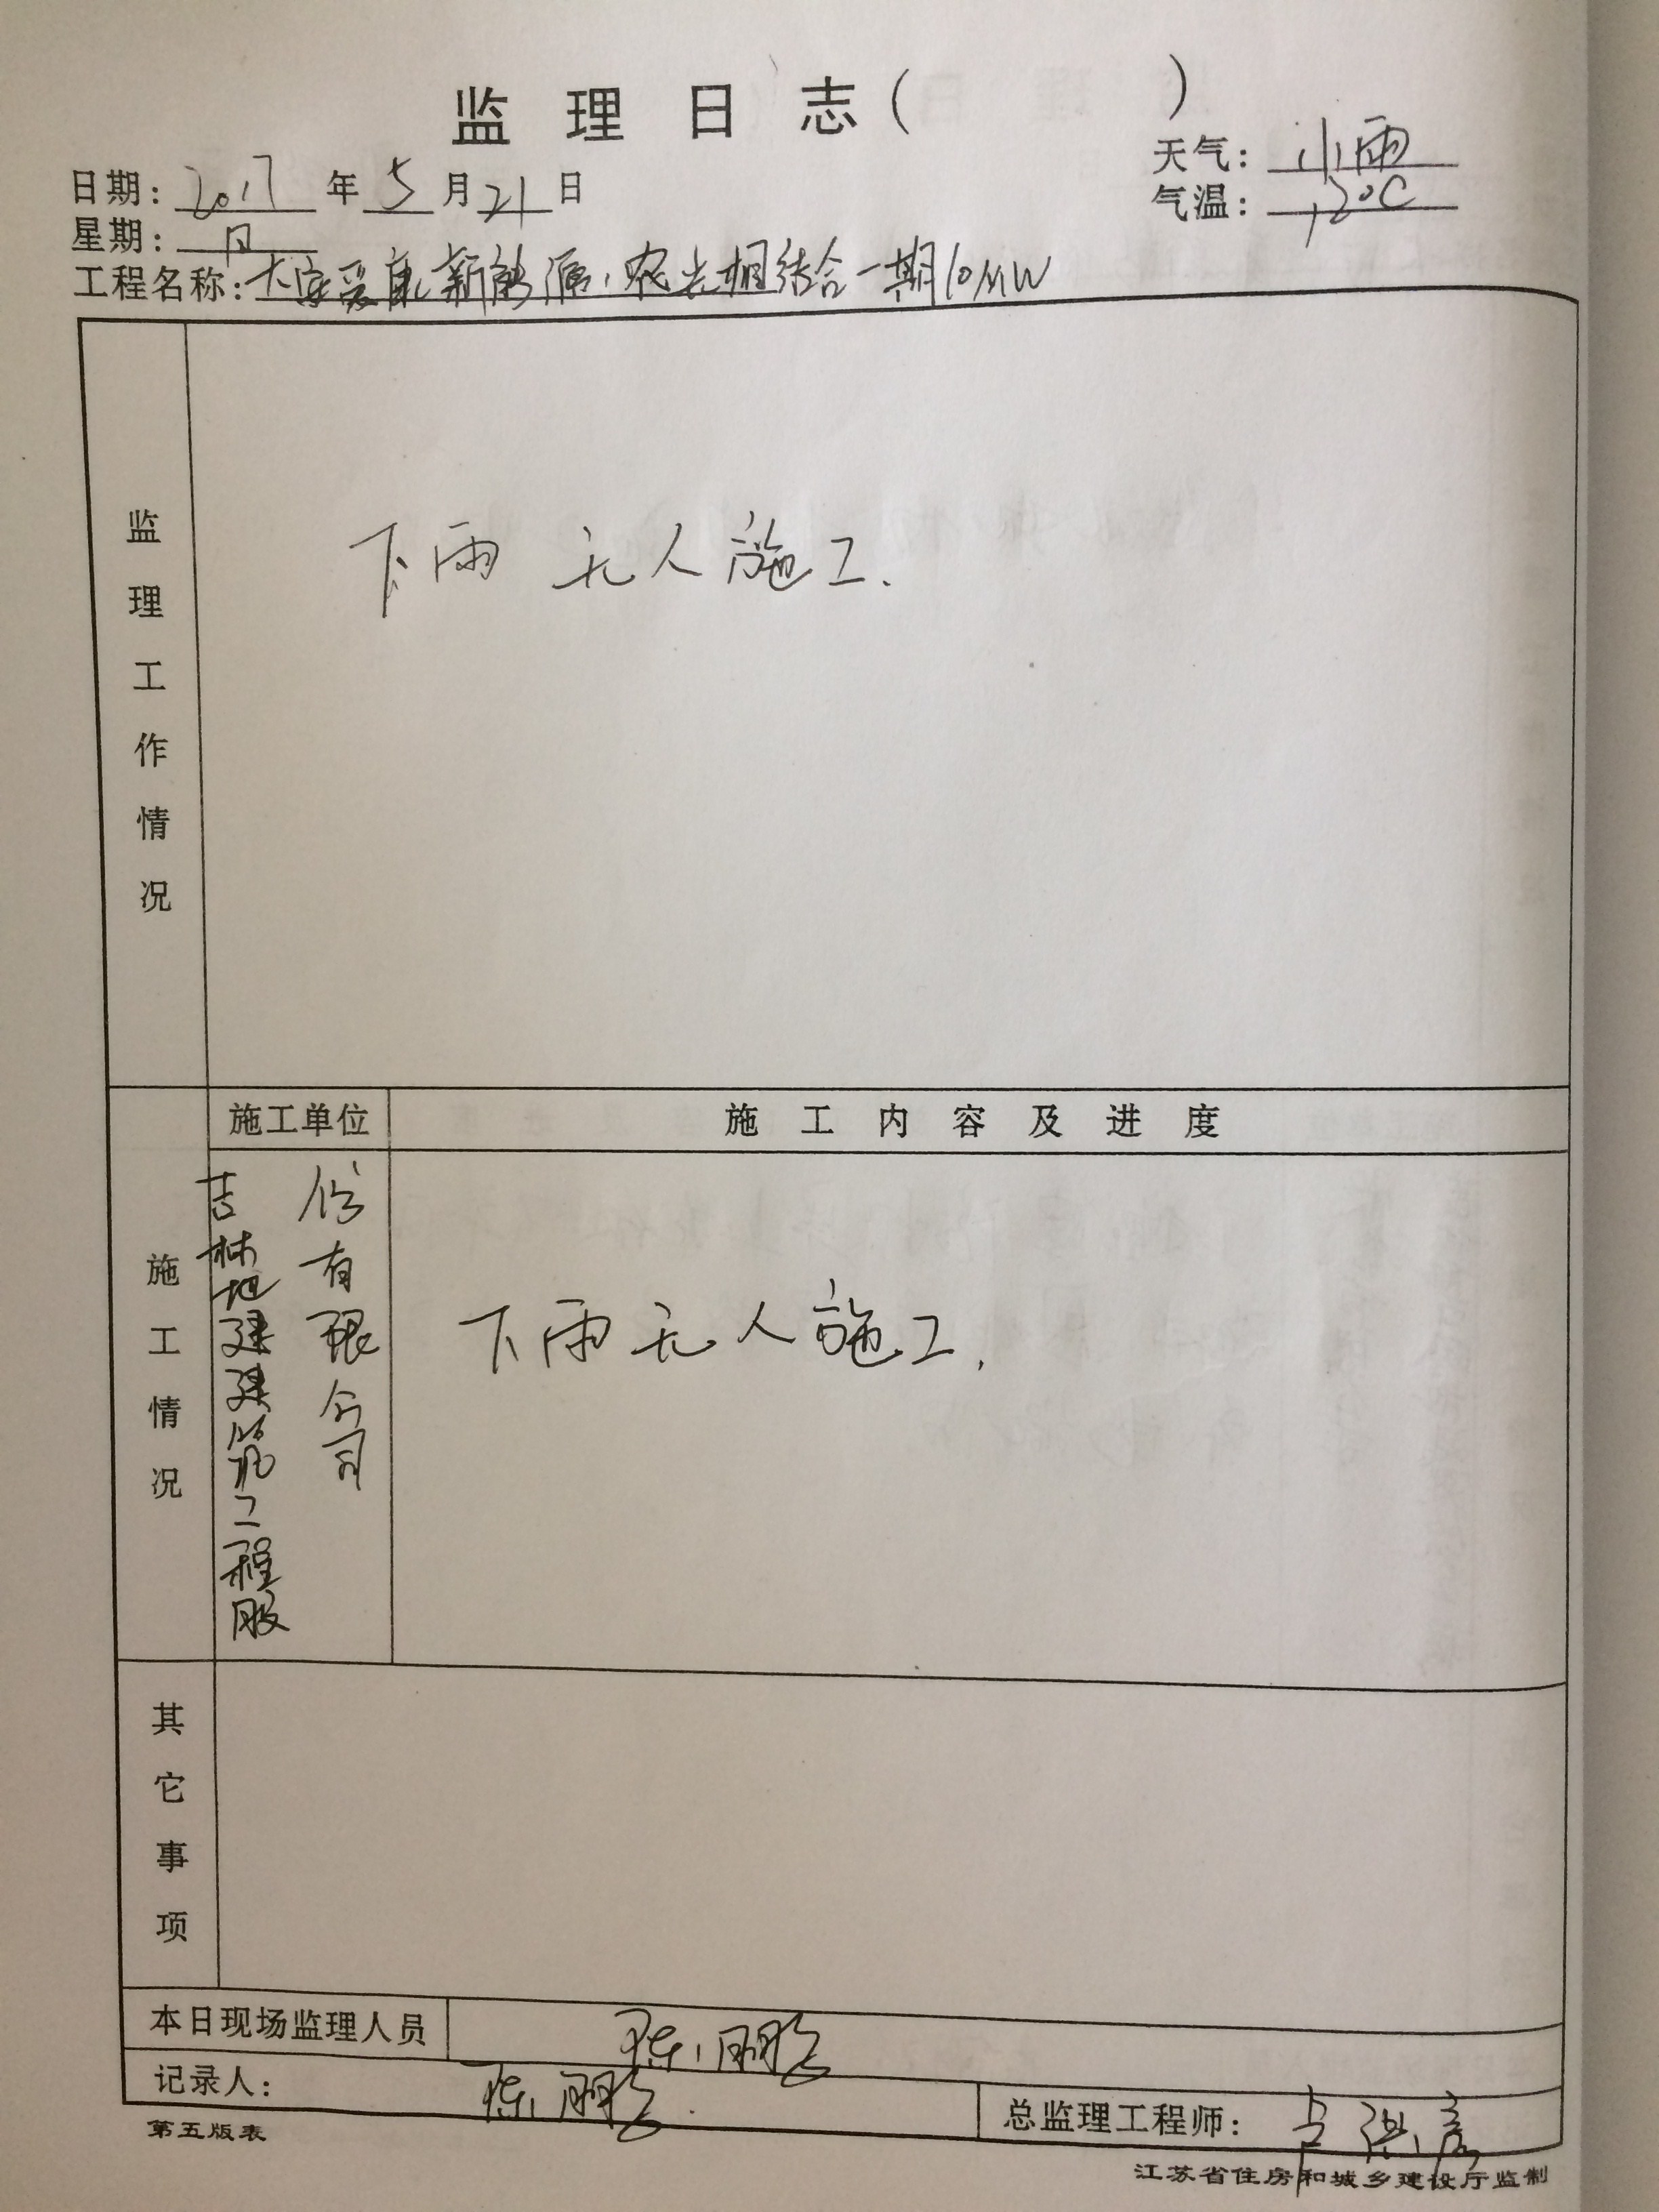 监理日志（ ）
日期：2017年5月21日
天气：小雨
星期：日
气温：12℃
工程名称：大安爱康新能源农光相结合一期10MW
监理工作情况
下雨 无人施工.
施工单位
施工内容及进度
施工情况
吉林地建建筑工程股
份有限公司
下雨无人施工.
其它事项
本日现场监理人员
陈鹏
记录人：陈鹏.
总监理工程师：
第五版表
江苏省住房和城乡建设厅监制